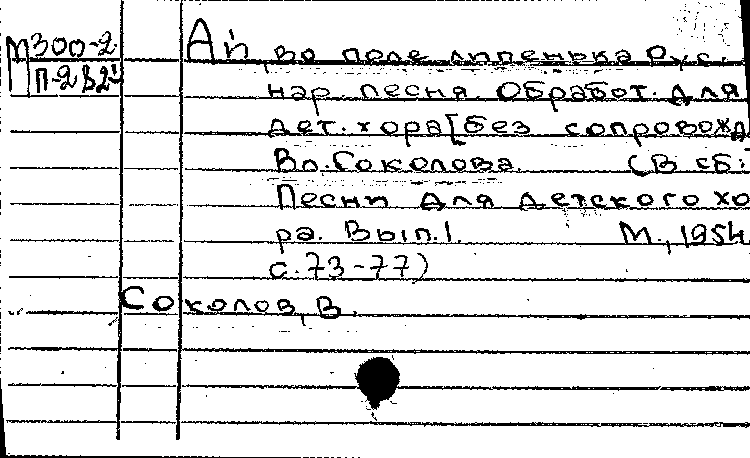 М300-2
П-282
Ай, во поле липенька Рус.
нар. песня. Обработ. для
дет. хора [без сопровожд
Вл. Соколова. (В сб:
Песни для детского хо
ра. Вып. 1. М., 1954
с. 73-77)
Соколов, В.